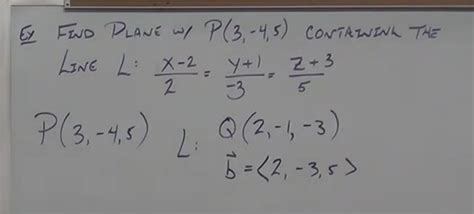 Ex FIND PLANE W/ P(3,-4,5) CONTAINING THE
LINE L: (x-2)/2 = (y+1)/-3 = (z+3)/5
P(3,-4,5) L: Q(2,-1,-3)
b⃗ = <2,-3,5>